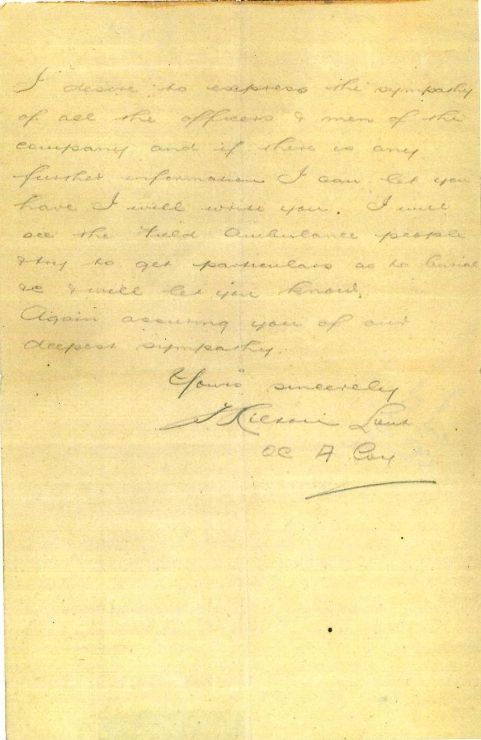 I desire to express the sympathy
of all the officers & men of the
company and if there is any
further information I can let you
have I will write you. I will
see the Field Ambulance people
& try to get particulars as to burial
&c & will let you know.
Again assuring you of our
deepest sympathy.
Yours sincerely
Lieut
OC A Coy